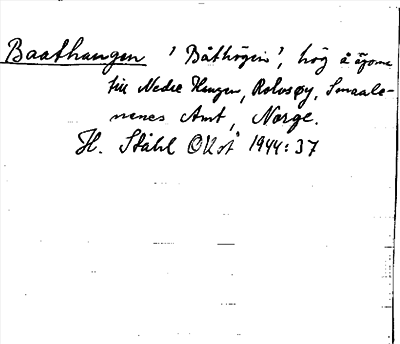 Baathaugen 'Båthögen', hög å ägorna
till Nedre Haugen, Rolvsøy, Smaale-
nenes Amt, Norge.
H. Ståhl OUoÅ 1944:37